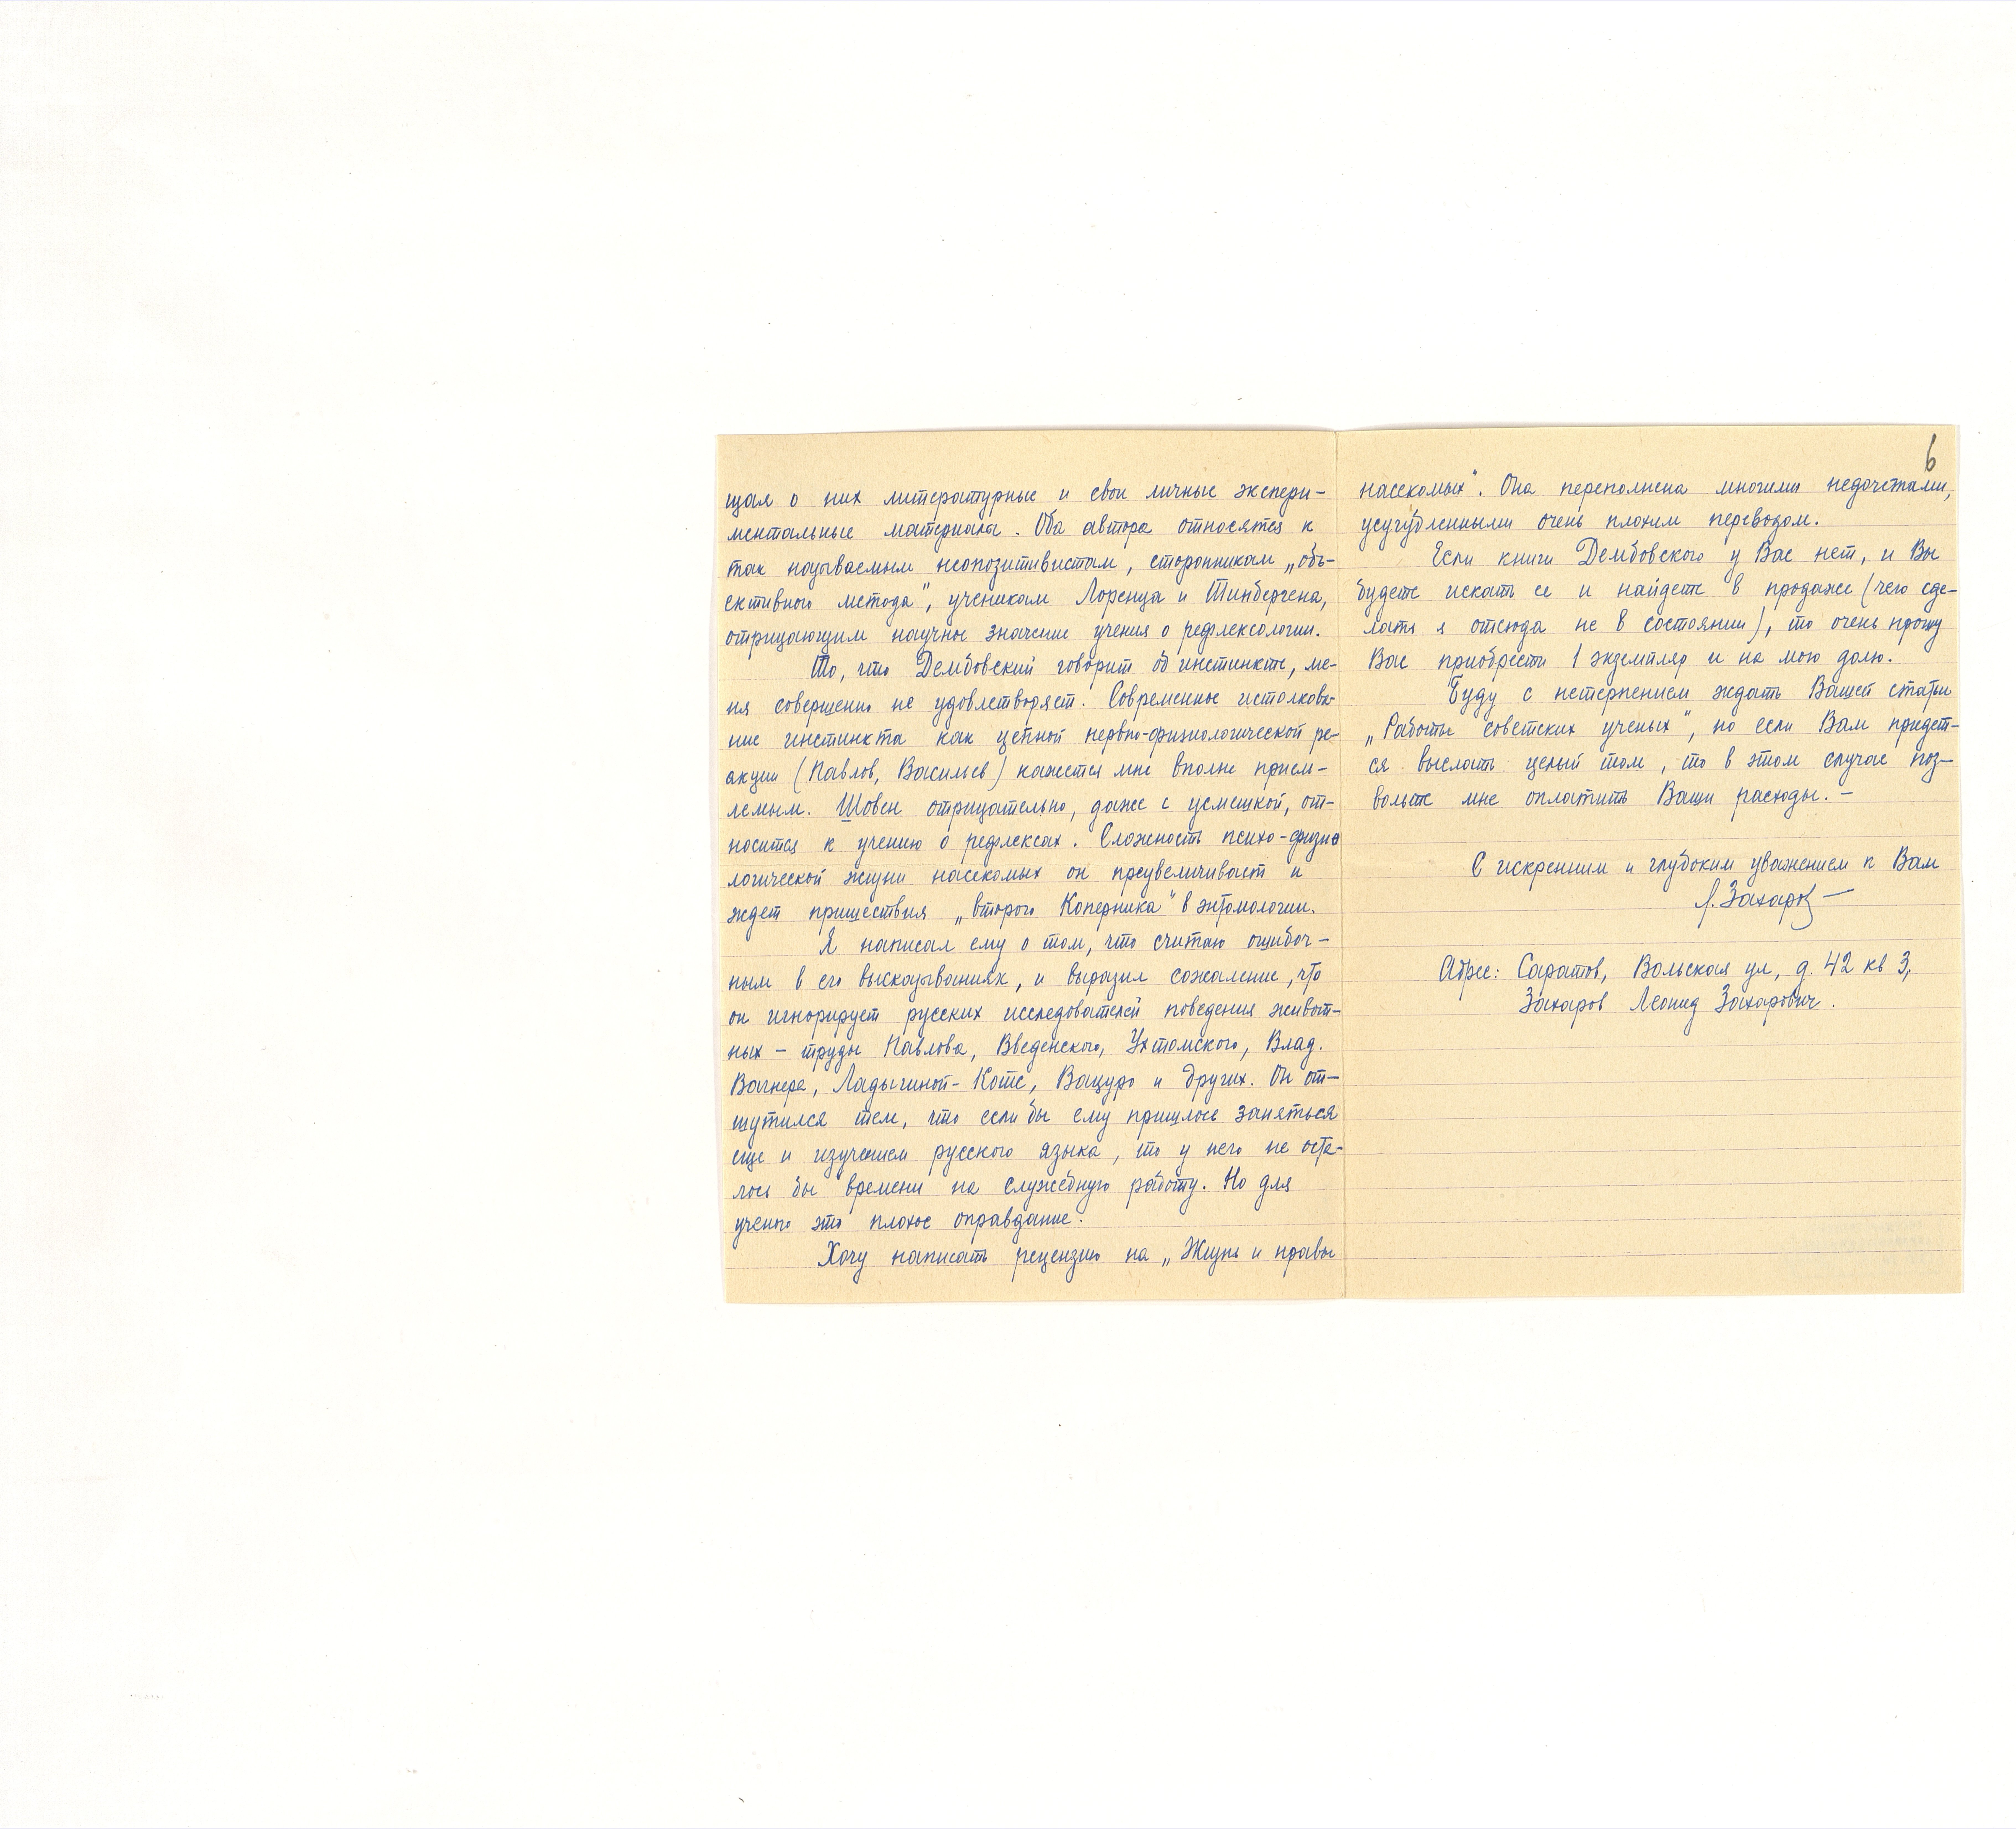 щая о них литературные и свои личные экспери-
ментальные материалы. Оба автора относятся к
так называемым неопозитивистам, сторонникам „объ-
ективного метода", ученикам Лоренца и Тинбергена,
отрицающим научное значение учения о рефлексологии.
То, что Дембовский говорит об инстинкте, ме-
ня совершенно не удовлетворяет. Современное истолкова-
ние инстинкта как цепной нервно-физиологической ре-
акции (Павлов, Васильев) кажется мне вполне прием-
лемым. Шовен отрицательно, даже с усмешкой, от-
носится к учению о рефлексах. Сложность психо-физио
логической жизни насекомых он преувеличивает и
ждет пришествия „второго Коперника" в энтомологии.
Я написал ему о том, что считаю ошибоч-
ным в его высказываниях, и выразил сожаление, что
он игнорирует русских исследователей поведения живот-
ных – труды Павлова, Введенского, Ухтомского, Влад.
Вагнера, Ладыгиной-Котс, Вацуро и других. Он от-
шутился тем, что если бы ему пришлось заняться
еще и изучением русского языка, то у него не оста-
лось бы времени на служебную работу. Но для
ученого это плохое оправдание.
Хочу написать рецензию на „Жизнь и нравы
6
насекомых". Она переполнена многими недочетами,
усугубленными очень плохим переводом.
Если книги Дембовского у Вас нет, и Вы
будете искать ее и найдете в продаже (чего сде-
лать я отсюда не в состоянии), то очень прошу
Вас приобрести 1 экземпляр и на мою долю.
Буду с нетерпением ждать Вашей статьи
„Работы советских ученых", но если Вам придет-
ся выслать целый том, то в этом случае поз-
вольте мне оплатить Ваши расходы. –
С искренним и глубоким уважением к Вам
Л. Захаров –
Адрес: Саратов, Вольская ул, д. 42 кв 3,
Захаров Леонид Захарович.